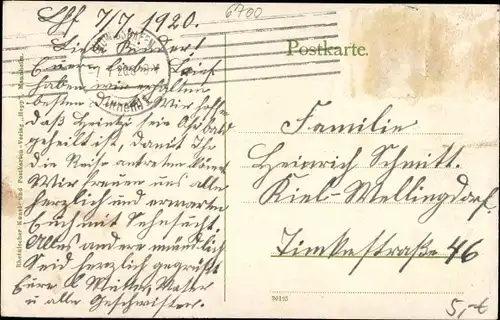 Lhf 7/7. 1920.
6700
Liebe Kinder!
Euren lieben Brief
haben wir erhalten
besten Wir hoffen
daß sein bald
geheilt ist, damit Ihr
die Reise antreten könnt
Wir freuen uns alle
herzlich und erwarten
Euch mit Sehnsucht.
Alles andere mündlich
Seid herzlich gegrüßt
Eure l. Mutter, Vater
u alle Geschwister.
Postkarte.
Familie
Heinrich Schmitt.
Kiel-Wellingdorf.
Timkestraße 46
5,-€
Rheinischer Kunst- und Postkarten-Verlag